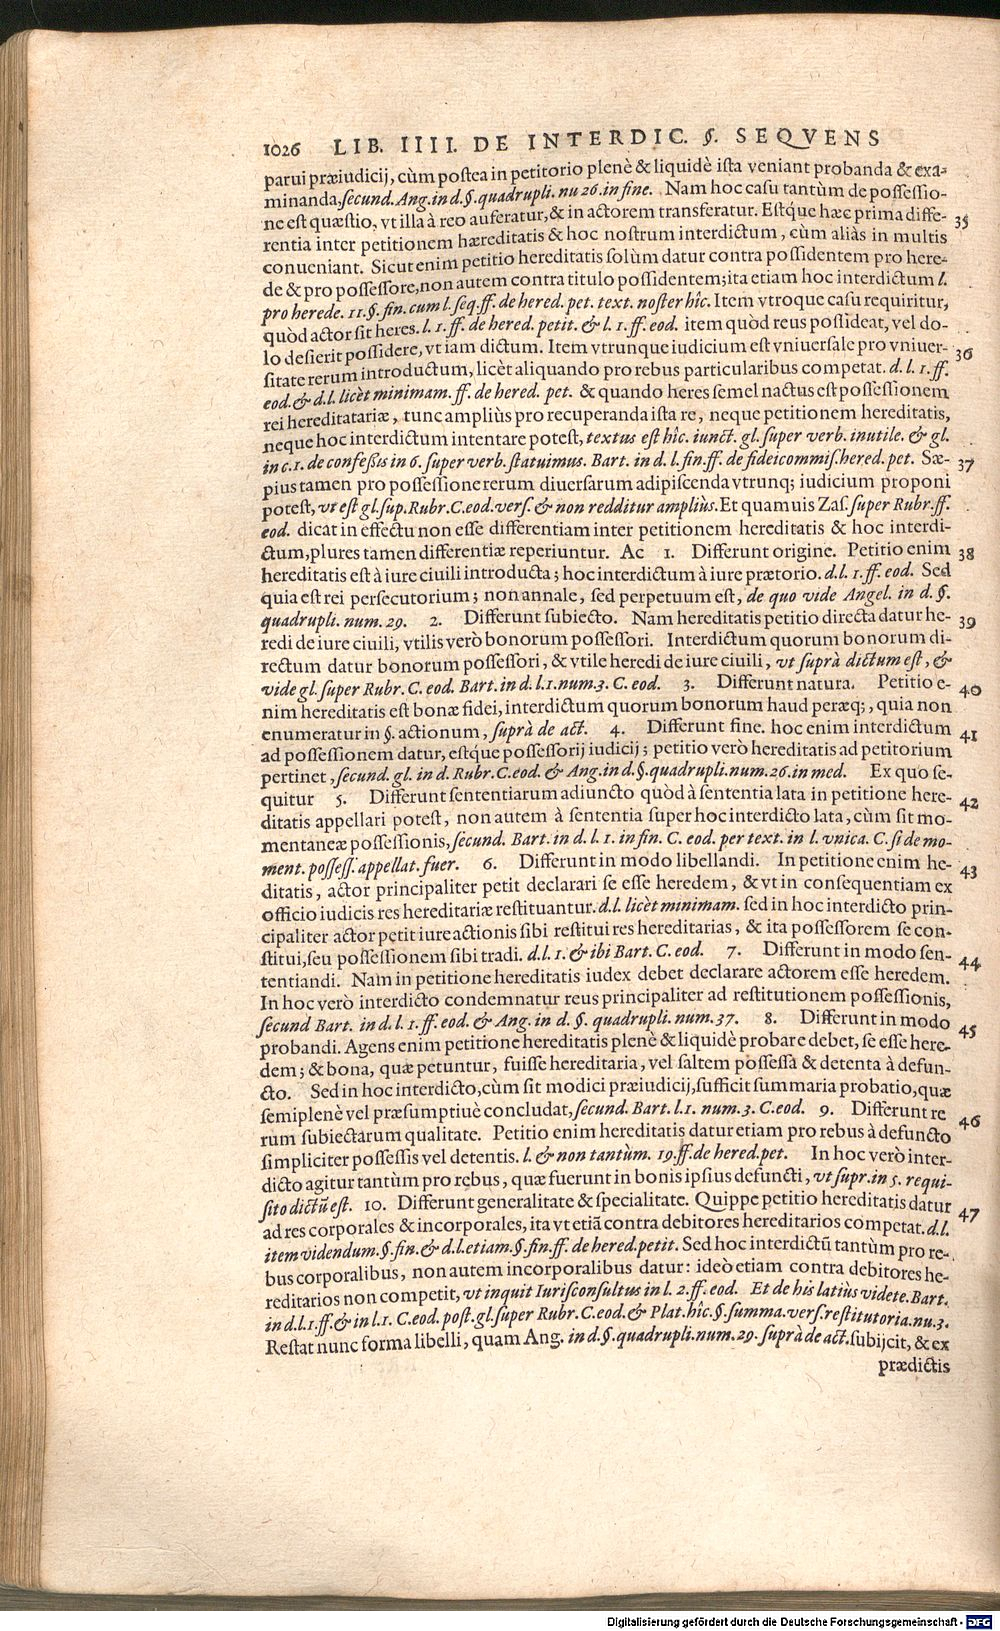 1026 LIB. IIII. DE INTERDIC. §. SEQVENS
parui præiudicij, cùm postea in petitorio plenè & liquidè ista veniant probanda & exa-
minanda, secund. Ang. in d. §. quadrupli. nu 26. in fine. Nam hoc casu tantùm de possessio-
ne est quæstio, vt illa à reo auferatur, & in actorem transferatur. Estq́ue hæc prima diffe- 35
rentia inter petitionem hæreditatis & hoc nostrum interdictum, cùm aliàs in multis
conueniant. Sicut enim petitio hereditatis solùm datur contra possidentem pro here-
de & pro possessore, non autem contra titulo possidentem; ita etiam hoc interdictum l.
pro herede. 11. §. fin. cum l. seq. ff. de hered. pet. text. noster hîc. Item vtroque casu requiritur,
quòd actor sit heres. l. 1. ff. de hered. petit. & l. 1. ff. eod. item quòd reus possideat, vel do-
lo desierit possidere, vt iam dictum. Item vtrunque iudicium est vniuersale pro vniuer- 36
sitate rerum introductum, licèt aliquando pro rebus particularibus competat. d. l. 1. ff.
eod. & d. l. licèt minimam. ff. de hered. pet. & quando heres semel nactus est possessionem
rei hereditatariæ, tunc ampliùs pro recuperanda ista re, neque petitionem hereditatis,
neque hoc interdictum intentare potest, textus est hîc. iunct. gl. super verb. inutile. & gl.
in c. 1. de confessis in 6. super verb. statuimus. Bart. in d. l. fin. ff. de fideicommis. hered. pet. Sæ- 37
pius tamen pro possessione rerum diuersarum adipiscenda vtrunq; iudicium proponi
potest, vt est gl. sup. Rubr. C. eod. vers. & non redditur ampliùs. Et quamuis Zas. super Rubr. ff.
eod. dicat in effectu non esse differentiam inter petitionem hereditatis & hoc interdi-
ctum, plures tamen differentiæ reperiuntur. Ac 1. Differunt origine. Petitio enim 38
hereditatis est à iure ciuili introducta; hoc interdictum à iure prætorio. d. l. 1. ff. eod. Sed
quia est rei persecutorium; non annale, sed perpetuum est, de quo vide Angel. in d. §.
quadrupli. num. 29. 2. Differunt subiecto. Nam hereditatis petitio directa datur he- 39
redi de iure ciuili, vtilis verò bonorum possessori. Interdictum quorum bonorum di-
rectum datur bonorum possessori, & vtile heredi de iure ciuili, vt suprà dictum est, &
vide gl. super Rubr. C. eod. Bart. in d. l. 1. num. 3. C. eod. 3. Differunt natura. Petitio e- 40
nim hereditatis est bonæ fidei, interdictum quorum bonorum haud peræq;, quia non
enumeratur in §. actionum, suprà de act. 4. Differunt fine. hoc enim interdictum 41
ad possessionem datur, estq́ue possessorij iudicij; petitio verò hereditatis ad petitorium
pertinet, secund. gl. in d. Rubr. C. eod. & Ang. in d. §. quadrupli. num. 26. in med. Ex quo se-
quitur 5. Differunt sententiarum adiuncto quòd à sententia lata in petitione here- 42
ditatis appellari potest, non autem à sententia super hoc interdicto lata, cùm sit mo-
mentaneæ possessionis, secund. Bart. in d. l. 1. in fin. C. eod. per text. in l. vnica. C. si de mo-
ment. possess. appellat. fuer. 6. Differunt in modo libellandi. In petitione enim he- 43
ditatis, actor principaliter petit declarari se esse heredem, & vt in consequentiam ex
officio iudicis res hereditariæ restituantur. d. l. licèt minimam. sed in hoc interdicto prin-
cipaliter actor petit iure actionis sibi restitui res hereditarias, & ita possessorem se con-
stitui, seu possessionem sibi tradi. d. l. 1. & ibi Bart. C. eod. 7. Differunt in modo sen- 44
tentiandi. Nam in petitione hereditatis iudex debet declarare actorem esse heredem.
In hoc verò interdicto condemnatur reus principaliter ad restitutionem possessionis,
secund Bart. in d. l. 1. ff. eod. & Ang. in d. §. quadrupli. num. 37. 8. Differunt in modo 45
probandi. Agens enim petitione hereditatis plenè & liquidè probare debet, se esse here-
dem; & bona, quæ petuntur, fuisse hereditaria, vel saltem possessa & detenta à defun-
cto. Sed in hoc interdicto, cùm sit modici præiudicij, sufficit summaria probatio, quæ
semiplenè vel præsumptiuè concludat, secund. Bart. l. 1. num. 3. C. eod. 9. Differunt re 46
rum subiectarum qualitate. Petitio enim hereditatis datur etiam pro rebus à defuncto
simpliciter possessis vel detentis. l. & non tantùm. 19. ff. de hered. pet. In hoc verò inter-
dicto agitur tantùm pro rebus, quæ fuerunt in bonis ipsius defuncti, vt supr. in 5. requi-
sito dictũ est. 10. Differunt generalitate & specialitate. Quippe petitio hereditatis datur 47
ad res corporales & incorporales, ita vt etiã contra debitores hereditarios competat. d. l.
item videndum. §. fin. & d. l. etiam. §. fin. ff. de hered. petit. Sed hoc interdictũ tantùm pro re-
bus corporalibus, non autem incorporalibus datur: ideò etiam contra debitores he-
reditarios non competit, vt inquit Iurisconsultus in l. 2. ff. eod. Et de his latiùs videte. Bart.
in d. l. 1. ff. & in l. 1. C. eod. post. gl. super Rubr. C. eod. & Plat. hîc. §. summa. vers. restitutoria. nu. 3.
Restat nunc forma libelli, quam Ang. in d. §. quadrupli. num. 29. suprà de act. subijcit, & ex
prædictis
Digitalisierung gefördert durch die Deutsche Forschungsgemeinschaft - DFG